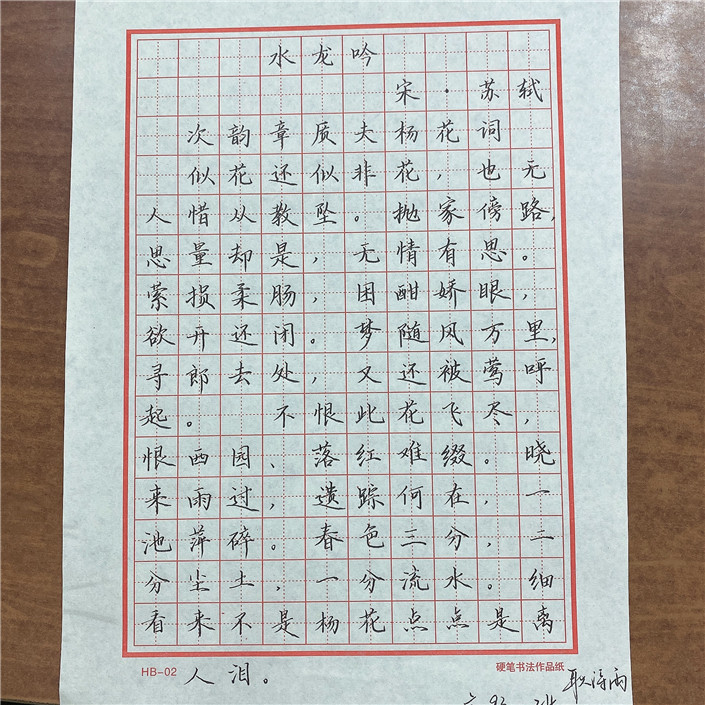 水龙吟
宋·苏轼
次韵章质夫杨花词
似花还似非花，也无
人惜从教坠。抛家傍路，
思量却是，无情有思。
萦损柔肠，困酣娇眼，
欲开还闭。梦随风万里，
寻郎去处，又还被莺呼
起。 不恨此花飞尽，
恨西园、落红难缀。晓
来雨过，遗踪何在，一
池萍碎。春色三分，二
分尘土，一分流水。细
看来不是杨花点点是离
人泪。
HB-02
硬笔书法作品纸